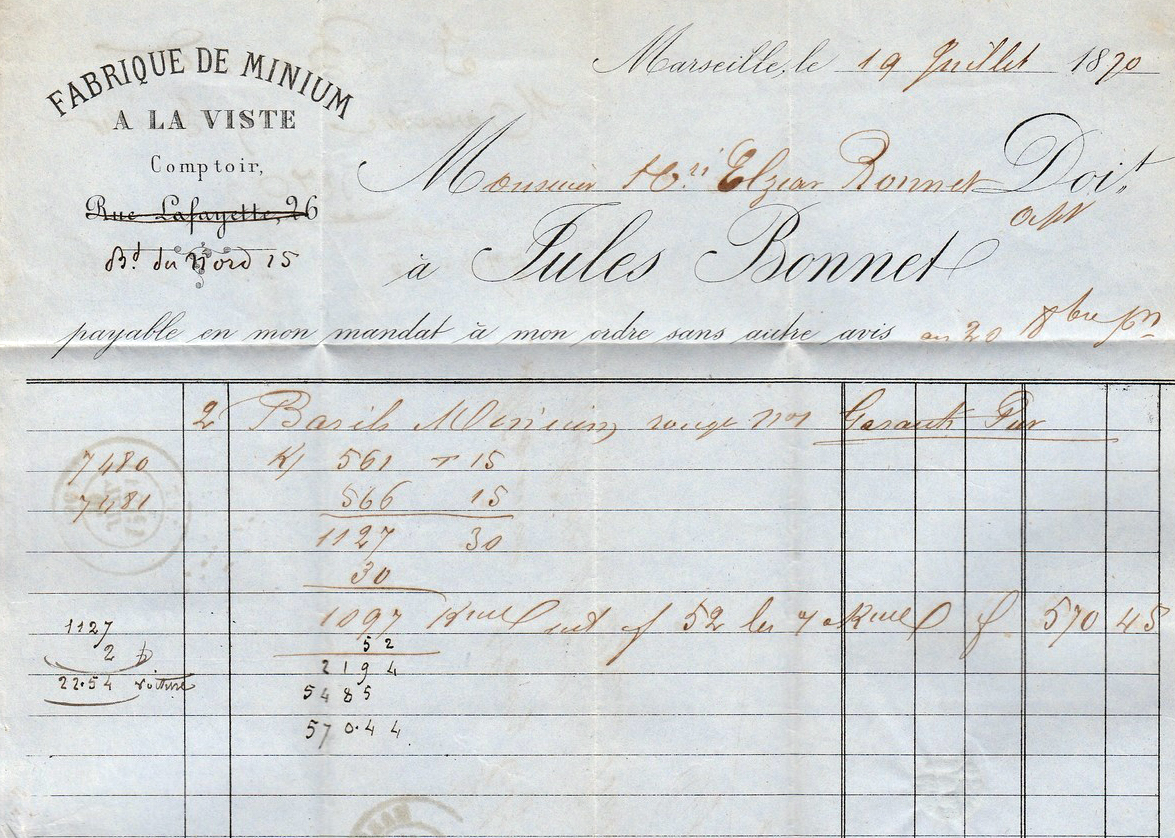 FABRIQUE DE MINIUM
A LA VISTE
Comptoir,
Rue Lafayette, 26
Bd du Nord 15
Marseille, le 19 Juillet 1870
Monsieur Hri Elzear Bonnet Doit
apt
à Jules Bonnet
payable en mon mandat à mon ordre sans autre avis au 20 8bre pn
2 Barils Minium rouge nos Garanti Pur
7480 K/ 561 T 15
7481 566 15
1127 30
30
1097 Kmes net f 52 les % Kmes f 570 45
1127
2
22.54 voiture
52
2194
5485
570.44